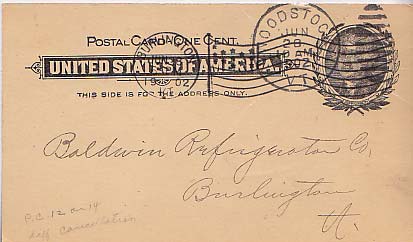 POSTAL CARD ONE CENT.
UNITED STATES OF AMERICA.
THIS SIDE IS FOR THE ADDRESS ONLY.
BURLINGTON
02
WOODSTOCK
JUN
28
AM
1902
VT.
Baldwin Refrigerator Co.
Burlington
Vt.
P.C. 12 on 14
diff cancellation